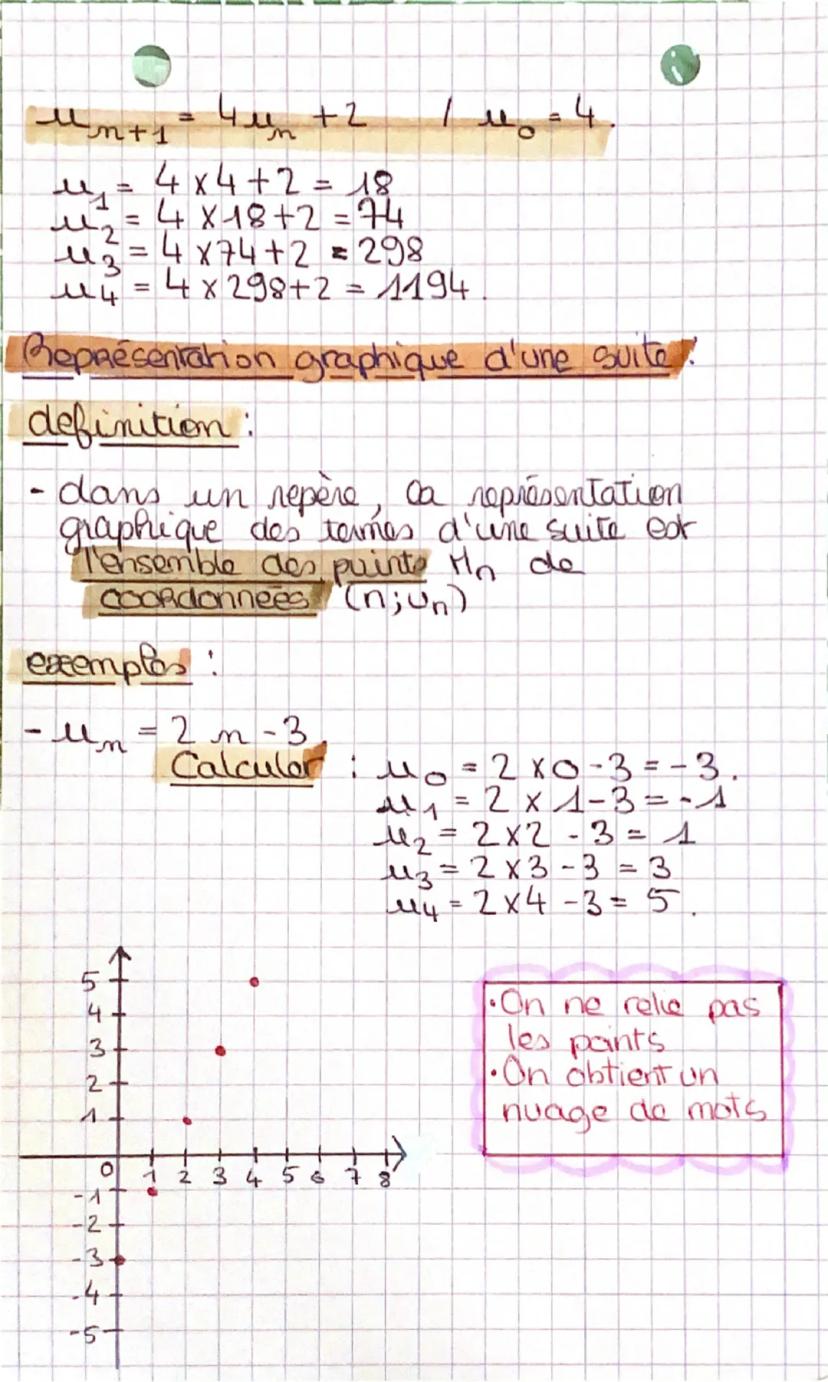 u_n+1 = 4u_n + 2 / u_0 = 4.
u_1 = 4 × 4 + 2 = 18
u_2 = 4 × 18 + 2 = 74
u_3 = 4 × 74 + 2 = 298
u_4 = 4 × 298 + 2 = 1194.
Représentation graphique d'une suite :
definition :
- dans un repère, la représentation
graphique des termes d'une suite est
l'ensemble des points M_n de
coordonnées (n ; u_n)
exemples :
- u_n = 2n - 3.
Calculer : u_0 = 2 × 0 - 3 = -3.
u_1 = 2 × 1 - 3 = -1
u_2 = 2 × 2 - 3 = 1
u_3 = 2 × 3 - 3 = 3
u_4 = 2 × 4 - 3 = 5.
5
4
3
2
1
0 1 2 3 4 5 6 7 8
-1
-2
-3
-4
-5
• On ne relie pas
les points
• On obtient un
nuage de mots